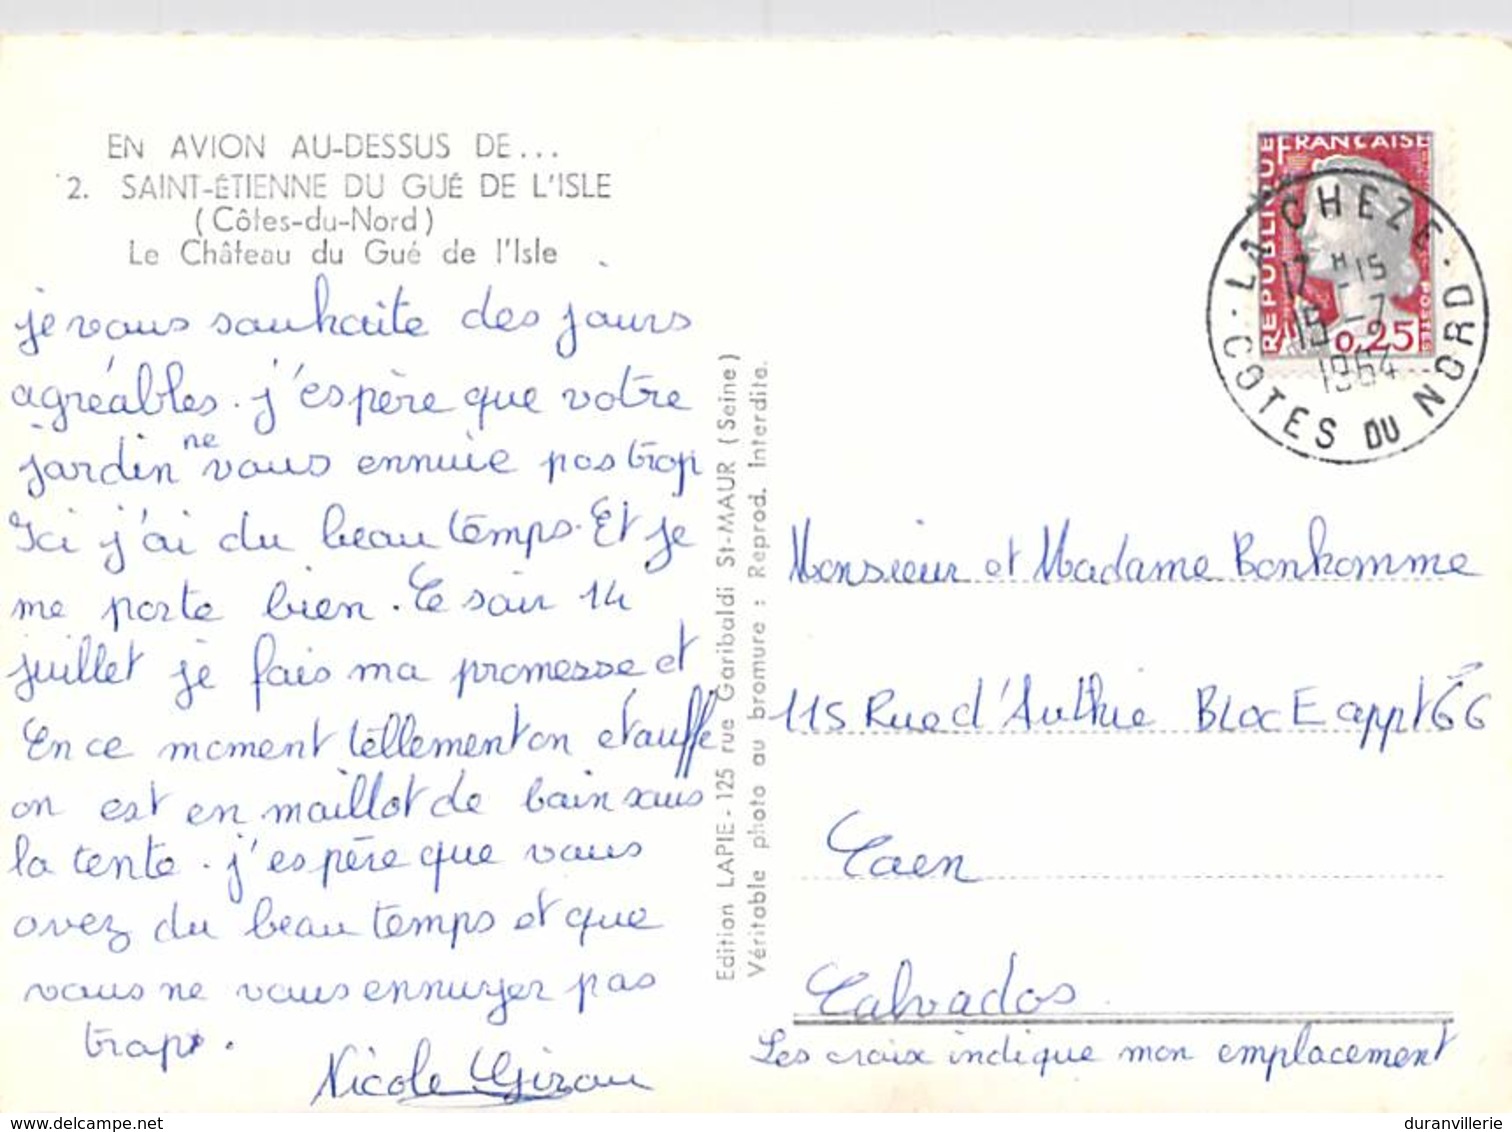 EN AVION AU-DESSUS DE...
2. SAINT-ÉTIENNE DU GUÉ DE L'ISLE
(Côtes-du-Nord)
Le Château du Gué de l'Isle
je vous souhaite des jours
agréables. j'espère que votre
jardin ne vous ennuie pas trop
Ici j'ai du beau temps. Et je
me porte bien. Ce soir 14
juillet je fais ma promesse et
En ce moment tellement on étouffe
on est en maillot de bain sous
la tente. j'espère que vous
avez du beau temps et que
vous ne vous ennuyer pas
trop.
Nicole Girou
Edition LAPIE - 125 rue Garibaldi St-MAUR (Seine)
Véritable photo au bromure : Reprod. Interdite.
RÉPUBLIQUE FRANÇAISE
POSTES
0,25
LA CHEZE
17 H 15
15 -7
1964
COTES DU NORD
Monsieur et Madame Bonhomme
115 Rue d'Authie Bloc E appt 66
Caen
Calvados
Les croix indique mon emplacement
duranvillerie
www.delcampe.net